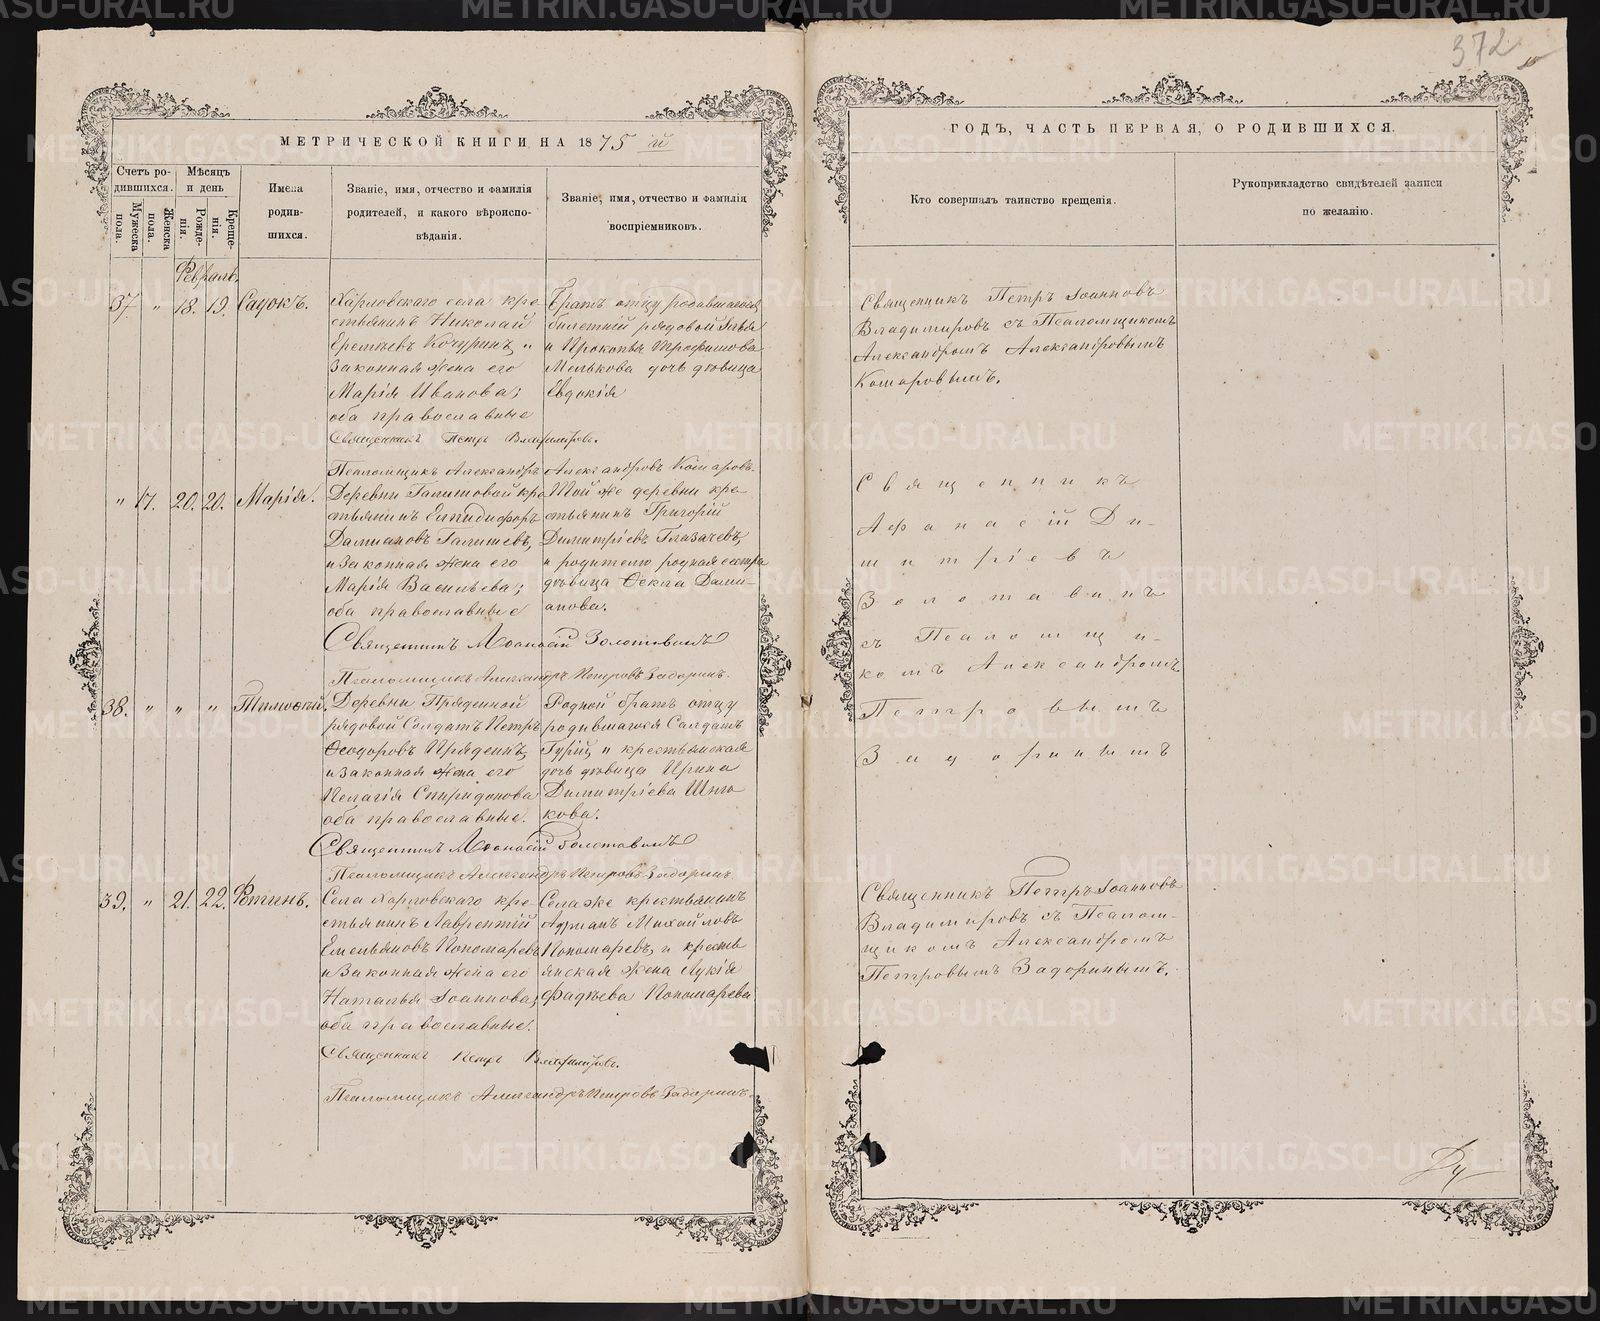 372
МЕТРИЧЕСКОЙ КНИГИ НА 1875 й
ГОДЪ, ЧАСТЬ ПЕРВАЯ, О РОДИВШИХСЯ.
Счетъ родившихся.
Мужеска пола.
Женска пола.
Мѣсяцъ и день
Рожденія.
Крещенія.
Имена родившихся.
Званіе, имя, отчество и фамилія
родителей, и какого вѣроиспо-
вѣданія.
Званіе, имя, отчество и фамилія
воспріемниковъ.
Кто совершалъ таинство крещенія.
Рукоприкладство свидѣтелей записи
по желанію.
Февраль.
37. " 18. 19. Садокъ.
Харловскаго села кре-
стьянинъ Николай
Еремѣевъ Кочуринъ, и
законная жена его
Марія Иванова;
оба православные
Братъ отцу родившагося
билетній рядовой Илья
и Прокопья Трофимова
Мелькова дочь дѣвица
Евдокія
Священникъ Петръ Іоанновъ
Владимировъ съ Псаломщикомъ
Александромъ Александровымъ
Комаровымъ.
Священникъ Петръ Владимировъ.
Псаломщикъ Александръ Александровъ Комаровъ.
" 17. 20. 20. Марія.
Деревни Галишовой кре-
стьянинъ Елпидифоръ
Даміановъ Галишевъ,
и законная жена его
Марія Васильева;
оба православные
Той же деревни кре-
стьянинъ Григорій
Димитріевъ Глазачевъ,
и родителю родная сестра
дѣвица Ѳекла Дами-
анова.
Священникъ
Афанасій Ди-
митріевъ
Золотавинъ
съ Псаломщи-
комъ Александромъ
Петровымъ
Задоринымъ
Священникъ Аѳанасій Золотавинъ
Псаломщикъ Александръ Петровъ Задоринъ.
38. " " " Тимоѳей.
Деревни Пряденной
рядовой Солдатъ Петръ
Ѳеодоровъ Пряденъ,
и законная жена его
Пелагія Спиридонова
оба православные.
Родной братъ отцу
родившагося Салдатъ
Гурій, и крестьянская
дочь дѣвица Ирина
Димитріева
Священникъ Аѳанасій Золотавинъ
Псаломщикъ Александръ Петровъ Задоринъ.
39. " 21. 22. Фотинъ.
Села Харловскаго кре-
стьянинъ Лаврентій
Емельяновъ Пономаревъ
и законная жена его
Наталья Іоаннова,
оба православные.
Села же крестьянинъ
Адріанъ Михайловъ
Пономаревъ, и кресть
янская жена Лукія
Фадѣева Пономарева
Священникъ Петръ Іоанновъ
Владимировъ съ Псалом-
щикомъ Александромъ
Петровымъ Задоринымъ.
Священникъ Петръ Владимировъ.
Псаломщикъ Александръ Петровъ Задоринъ.
METRIKI.GASO-URAL.RU